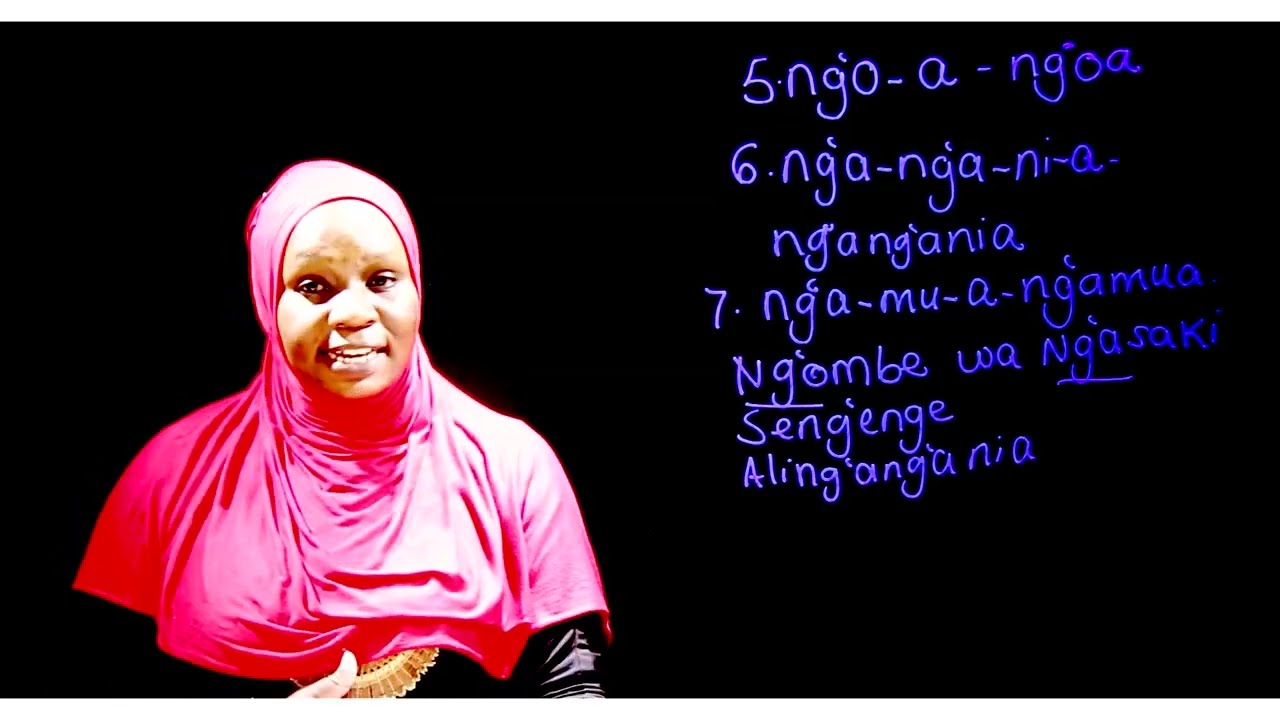 5. ng'o - a - ng'oa
6. ng'a - ng'a - ni - a -
ng'ang'ania
7. ng'a - mu - a - ng'amua.
Ng'ombe wa Ng'asaki
Seng'enge
Aling'ang'ania